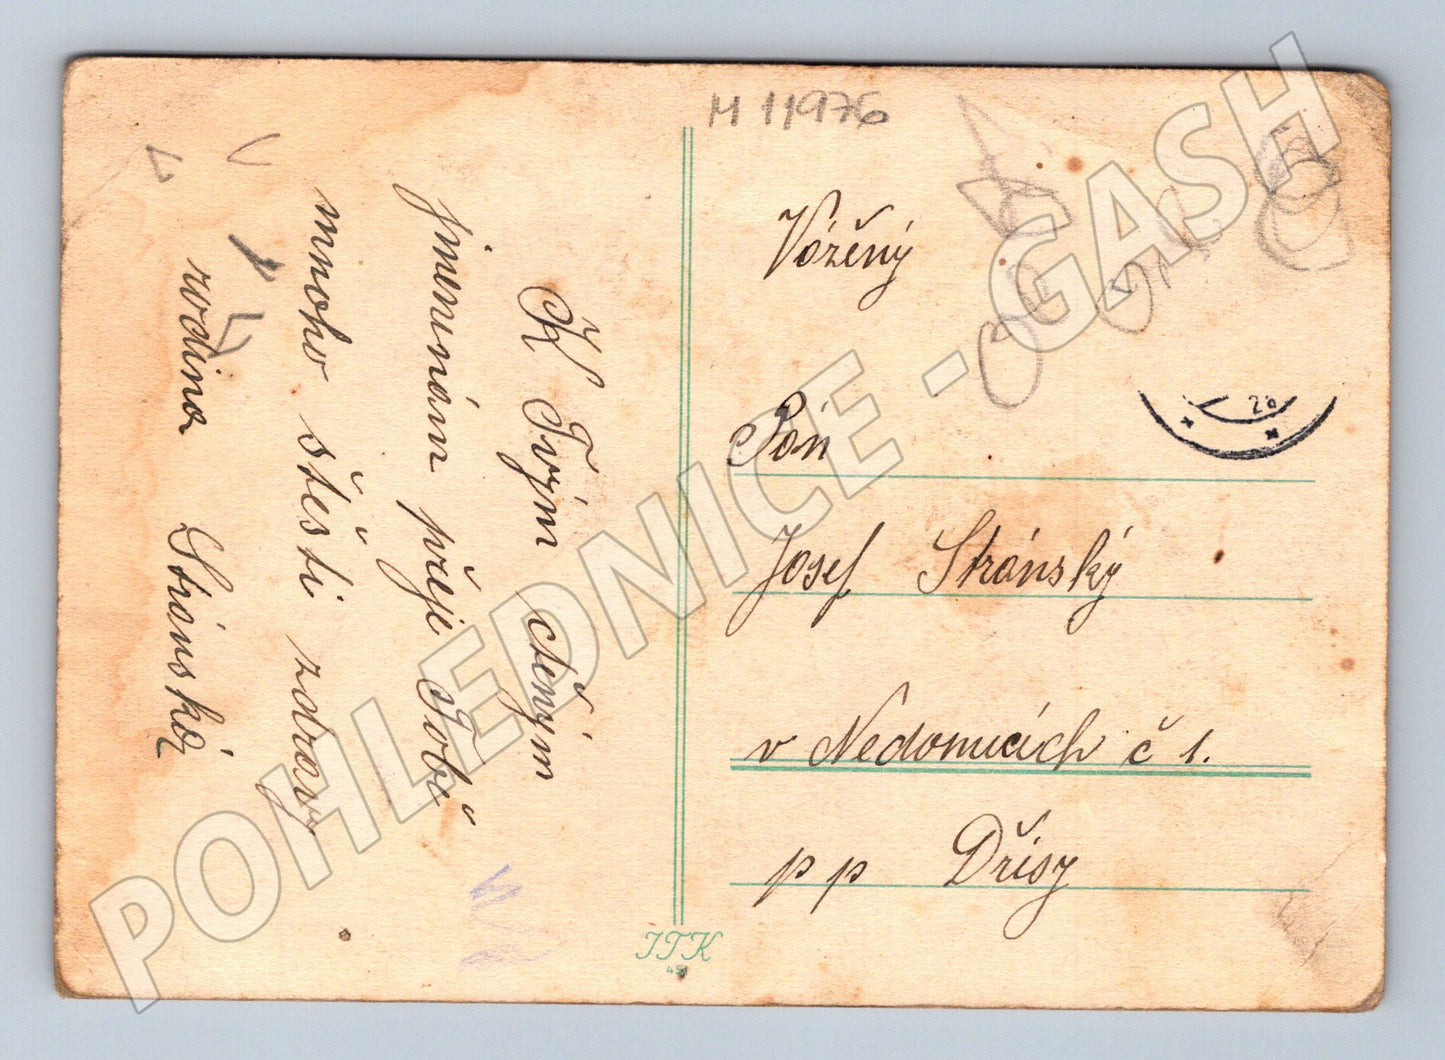 M 11976
K Tvým ctěným
jmeninám přeji Tobě
mnoho štěsti zdravy
rodina Stránská
Vóžěný
Pán
Josef Stránský
v Nedomicích č 1.
pp Dřisy
28
ITK
POHLEDNICE - GASH